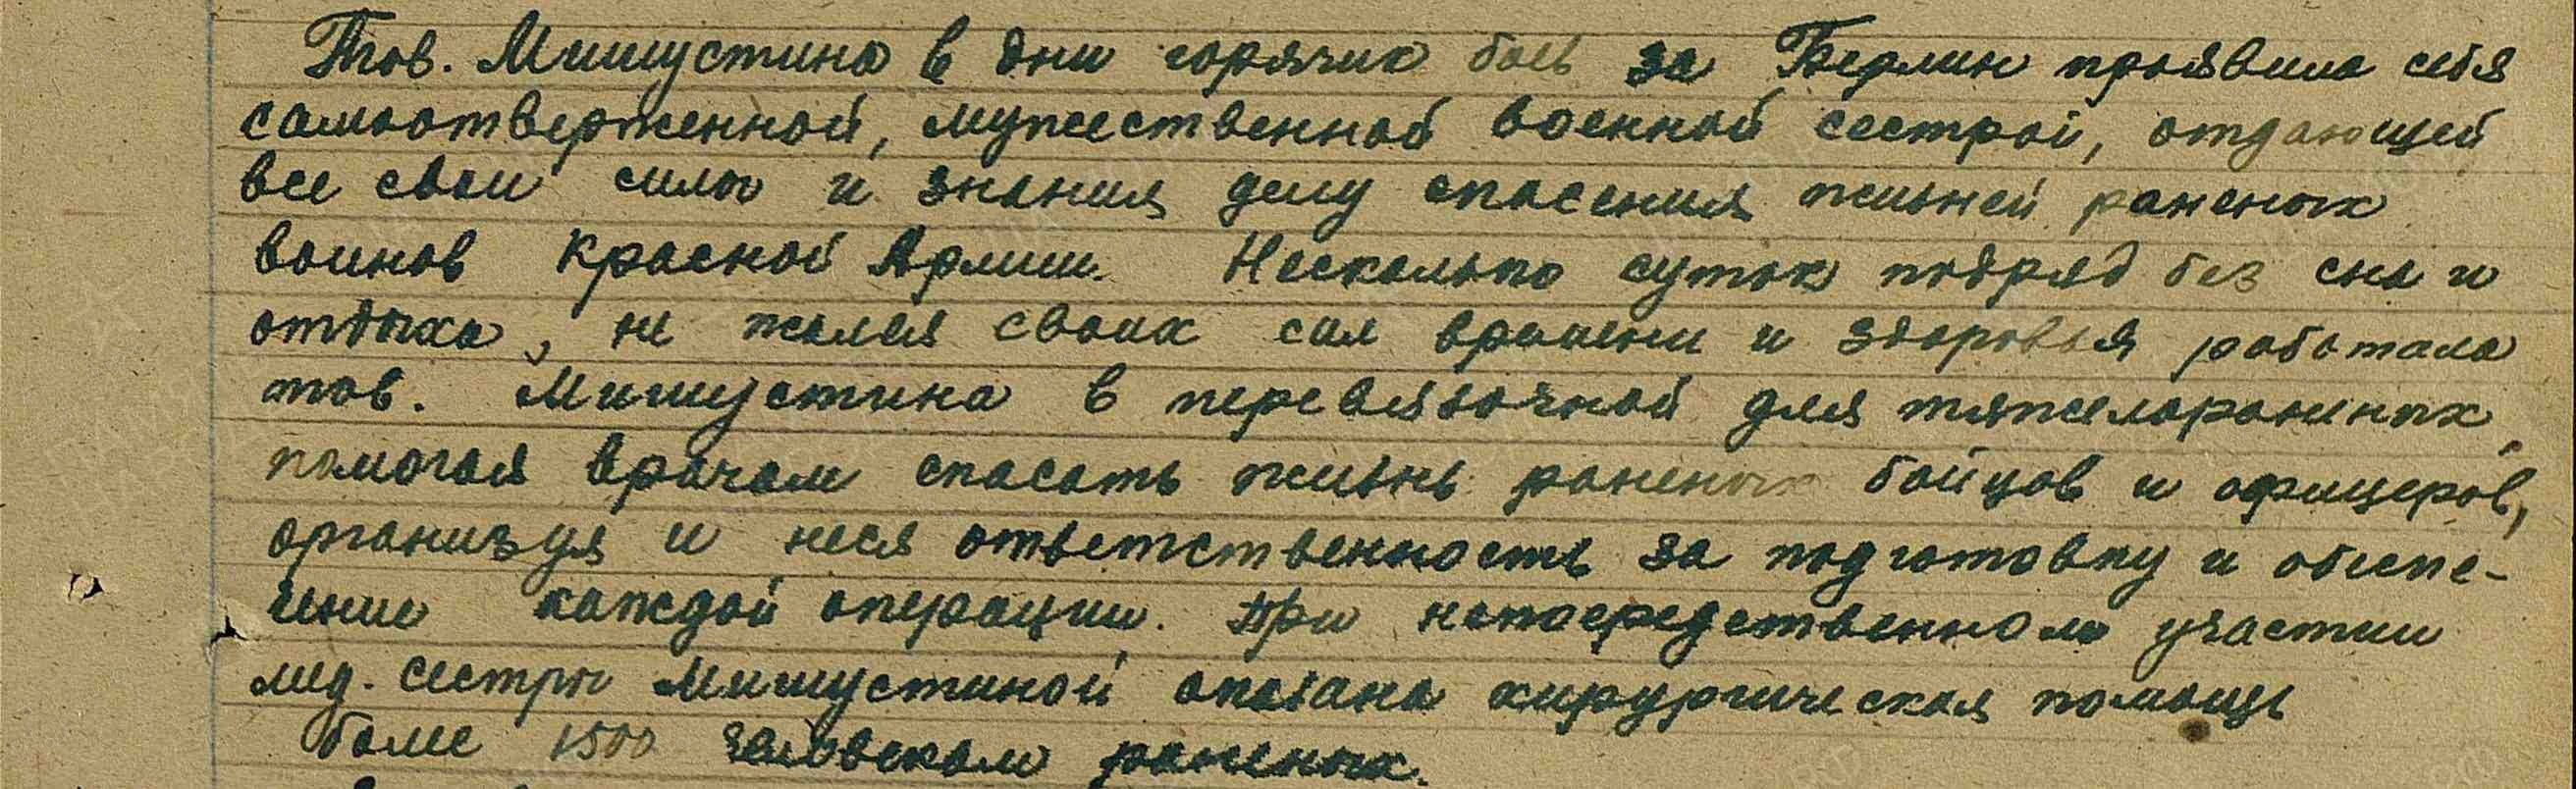 Тов. Мишустина в дни горячих боев за Берлин проявила себя
самоотверженной, мужественной военной сестрой, отдающей
все свои силы и знания делу спасения жизней раненых
воинов Красной Армии. Несколько суток подряд без сна и
отдыха, не жалея своих сил времени и здоровья работала
тов. Мишустина в перевязочной для тяжелораненых,
помогая врачам спасать жизнь раненых бойцов и офицеров,
организуя и неся ответственность за подготовку и обеспе-
чение каждой операции. При непосредственном участии
мед. сестры Мишустиной оказана хирургическая помощь
более 1500 человекам раненых.